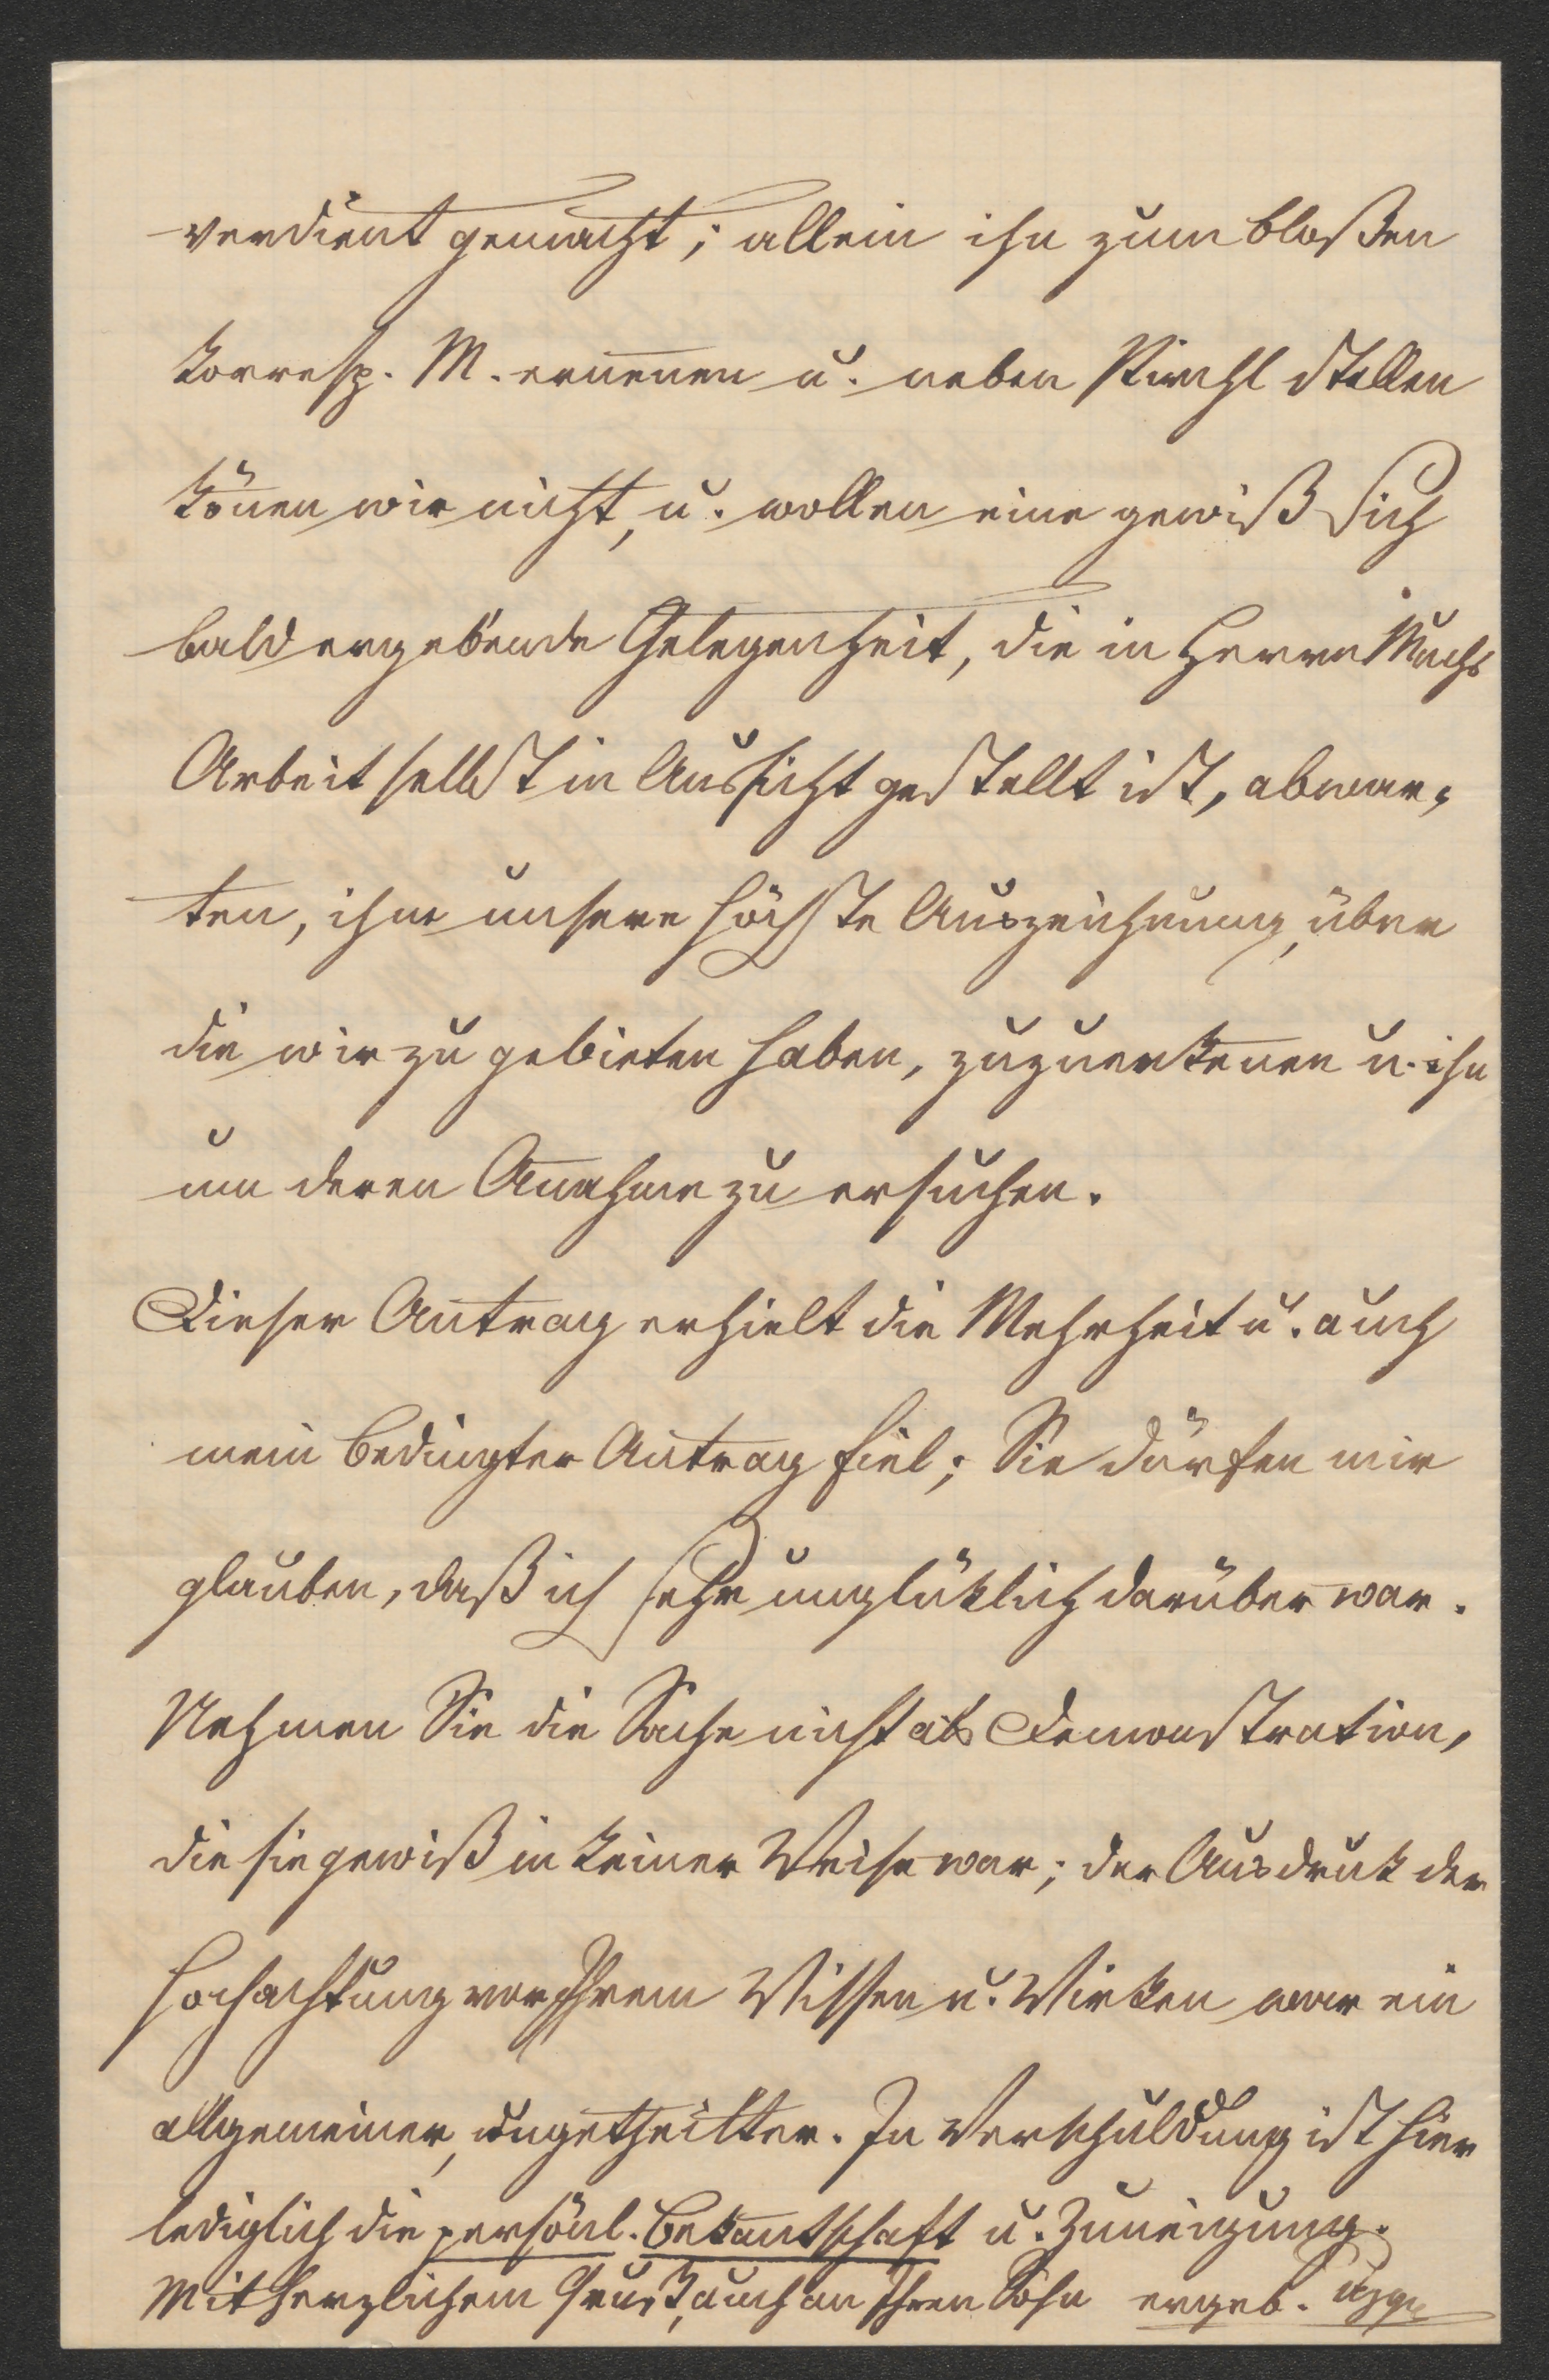 verdient gemacht; allein ihn zum bloßen
korresp. M. ernen̄en u. neben Pirchl stellen
kön̄en wir nicht, u. wollen eine gewiß sich
bald ergebende Gelegenheit, die in Herrn Muchs
Arbeit selbst in Aussicht gestellt ist, abwar-
ten, ihm unsere höchste Auszeichnung, über
die wir zu gebieten haben, zuzuerken̄en u. ihn
um deren An̄ahme zu ersuchen.
Dieser Antrag erhielt die Mehrheit u. auch
mein bedingter Antrag fiel; Sie dürfen mir
glauben, daß ich sehr unglüklich darüber war.
Nehmen Sie die Sache nicht als Demonstration,
die sie gewiß in keiner Weise war; der Ausdruk der
Hochachtung vor Ihrem Wissen u. Wirken war ein
allgemeiner, ungetheilter. In Verschuldung ist hier
lediglich die persönl. Bekan̄tschaft u. Zuneigung.
Mit herzlichem Gruß, auch an Ihren Sohn ergeb.